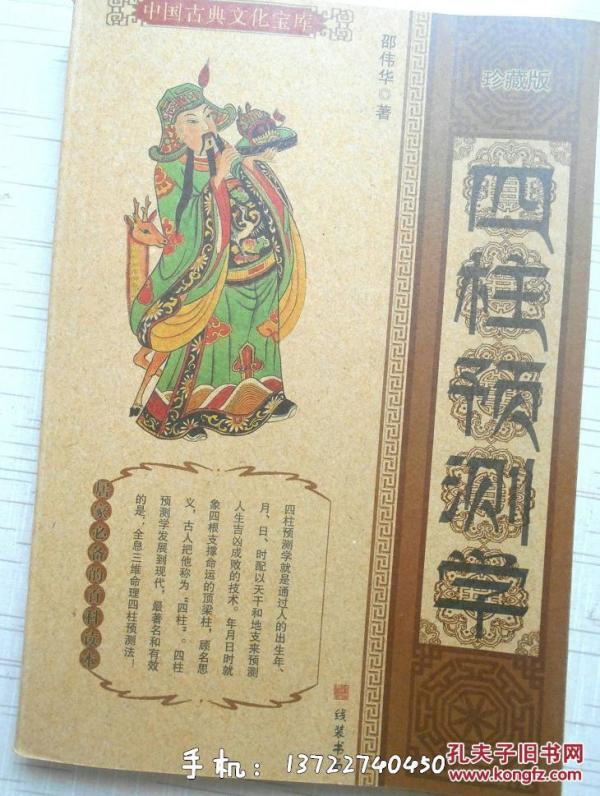 中国古典文化宝库
邵伟华◎著
珍藏版
四柱预测学
四柱预测学就是通过人的出生年、
月、日、时配以天干和地支来预测
人生吉凶成败的技术。年月日时就
象四根支撑命运的顶梁柱，顾名思
义，古人把他称为“四柱”。四柱
预测学发展到现代，最著名和有效
的是：全息三维命理四柱预测法！
居家必备的百科读本
线装书
手机：13722740450
孔夫子旧书网
www.kongfz.com